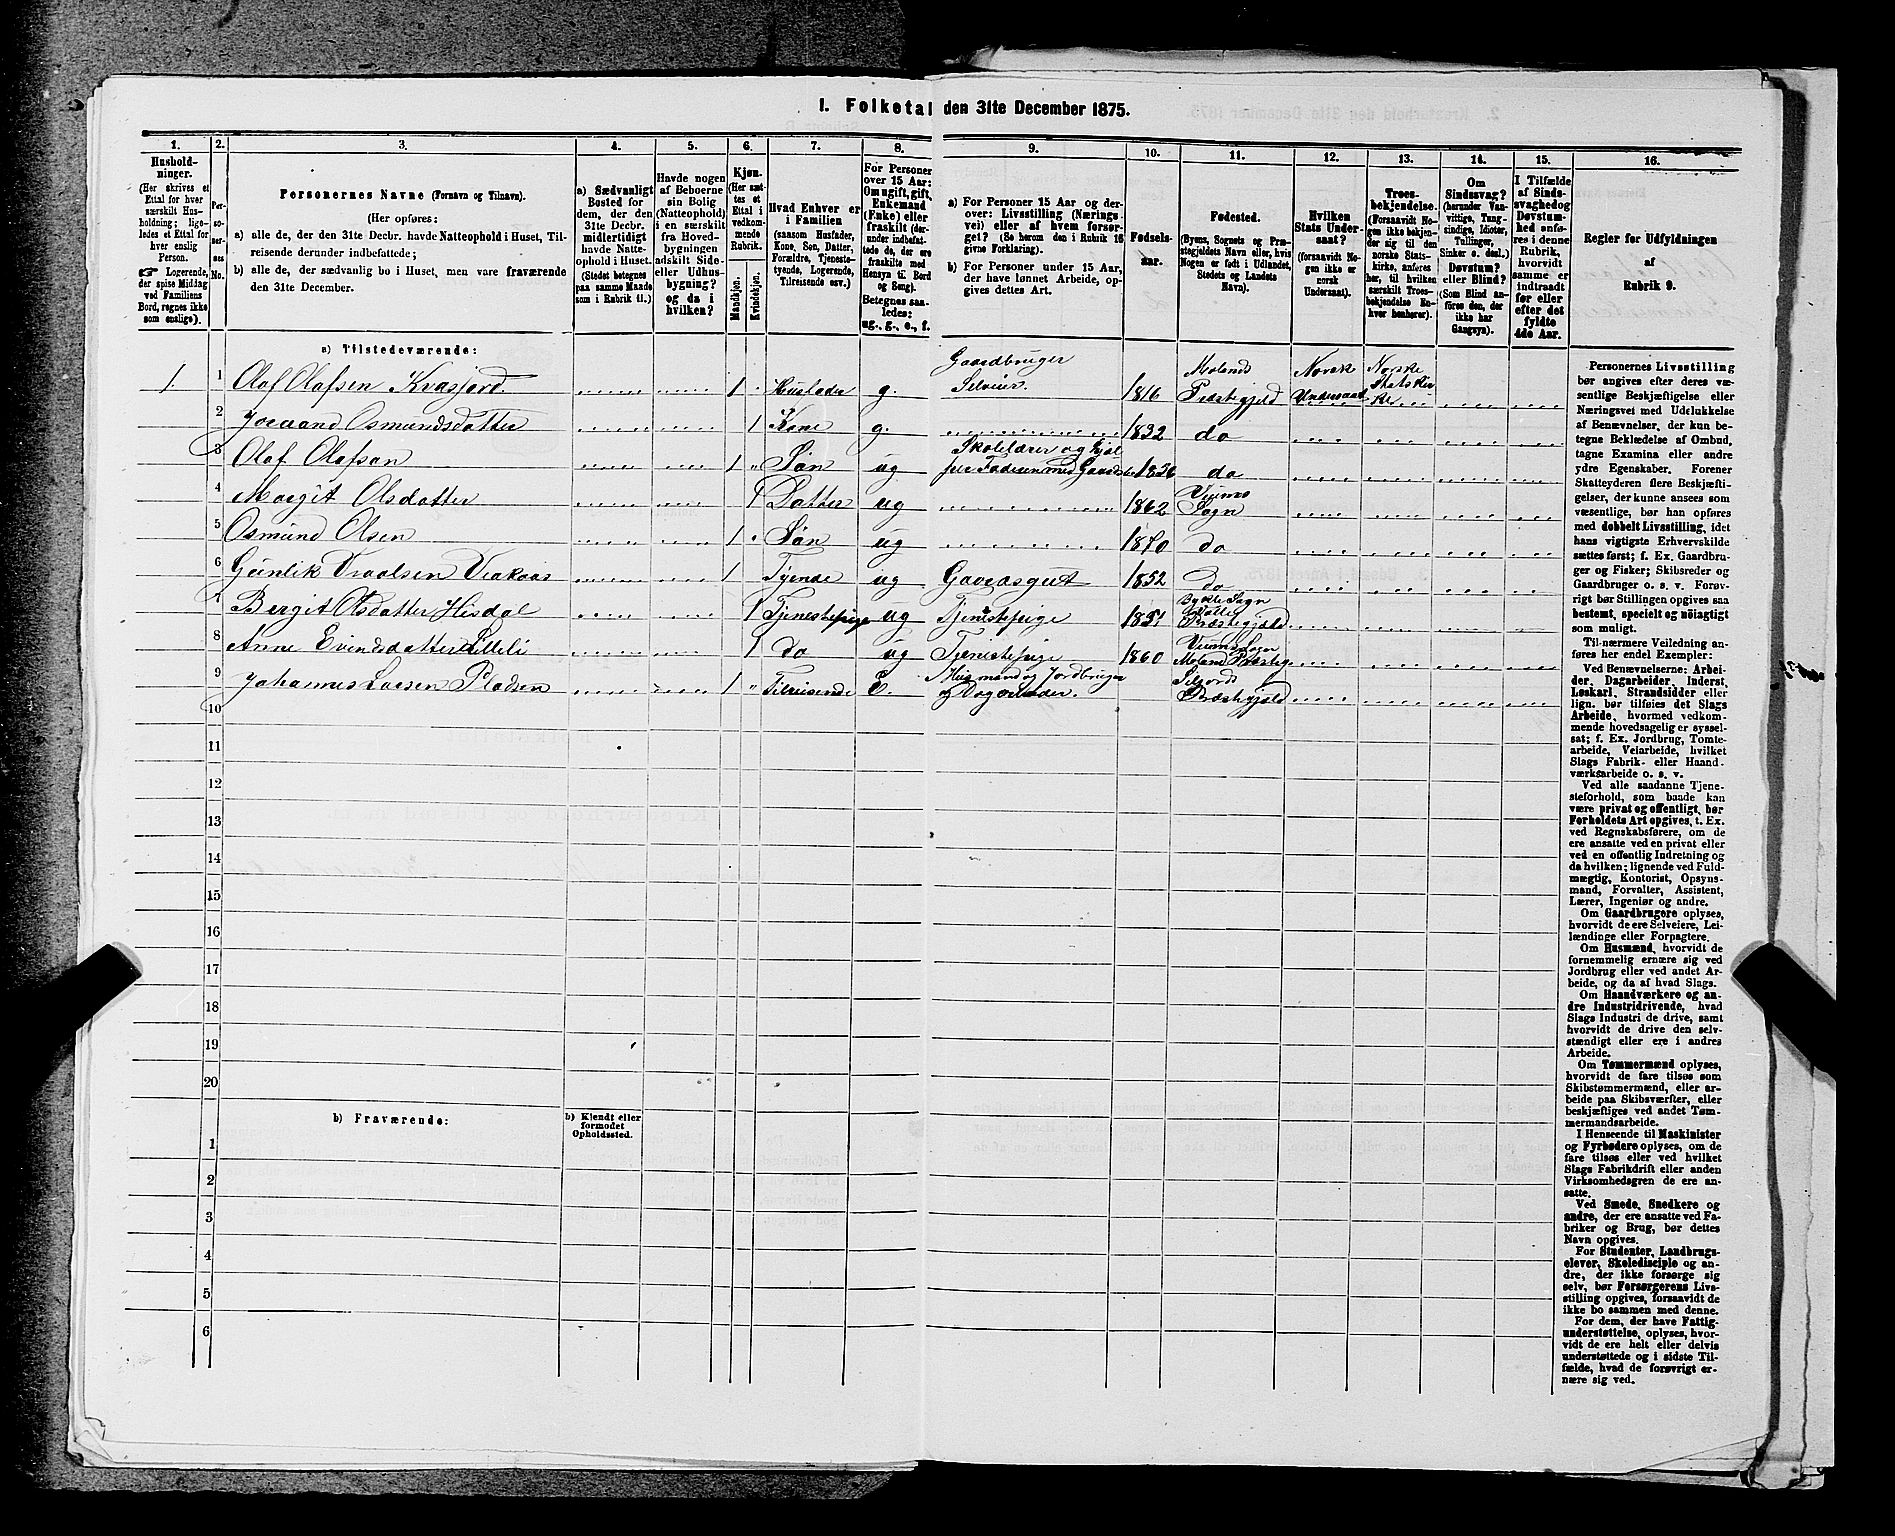 1. Folketal den 31te December 1875.
1. 2. 3. 4. 5. 6. 7. 8. 9. 10. 11. 12. 13. 14. 15. 16.
Hushold-
ninger.
(Her skrives et
Ettal for hver
særskilt Hus-
holdning; lige-
ledes et Ettal for
hver enslig
Person.
☛ Logerende,
der spise Middag
ved Familiens
Bord, regnes ikke
som enslige).
Per-
so-
ner-
nes
No.
Personernes Navne (Fornavn og Tilnavn).
(Her opføres:
a) alle de, der den 31te Decbr. havde Natteophold i Huset, Til-
reisende derunder indbefattede;
b) alle de, der sædvanlig bo i Huset, men vare fraværende
den 31te December.
a) Sædvanligt
Bosted for
dem, der den
31te Decbr.
midlertidigt
havde Natte-
ophold i Huset.
(Stedet betegnes
paa samme Maade
som i Rubrik 11.)
Havde nogen
af Beboerne
sin Bolig
(Natteophold)
i en særskilt
fra Hoved-
bygningen
adskilt Side-
eller Udhus-
bygning?
og da i
hvilken?
Kjøn.
(Her sæt-
tes et
Ettal i
vedkom-
mende
Rubrik.
Mandkjøn.
Kvindekjøn.
Hvad Enhver er
i Familien
(saasom Husfader,
Kone, Søn, Datter,
Forældre, Tjeneste-
tyende, Logerende,
Tilreisende osv.)
For Personer
over 15 Aar:
Om ugift, gift,
Enkemand
(Enke) eller
fraskilt (der-
under indbefat-
tede de, der ere
fraskilte med
Hensyn til Bord
og Seng).
Betegnes saa-
ledes:
ug., g., e., f.
a) For Personer 15 Aar og der-
over: Livsstilling (Nærings-
vei) eller af hvem forsør-
get? (Se herom den i Rubrik 16
givne Forklaring).
b) For Personer under 15 Aar,
der have lønnet Arbeide, op-
gives dettes Art.
Fødsels-
aar.
Fødested.
(Byens, Sognets og Præ-
stegjeldets Navn eller, hvis
Nogen er født i Udlandet,
Stedets og Landets
Navn).
Hvilken
Stats Under-
saat?
(forsaavidt No-
gen ikke er
norsk
Undersaat).
Troes-
bekjendelse.
(Forsaavidt No-
gen ikke bekjen-
der sig til den
norske Stats-
kirke, anføres
her, til hvilken
særskilt Troes-
bekjendelse En-
hver henhører).
Om
Sindssvag?
(herunder Van-
vittige, Tung-
sindige, Idioter,
Tullinger,
Sinker o. desl.).
Døvstum?
eller Blind?
(Som Blind an-
føres den, der
ikke har
Gangsyn).
I Tilfælde
af Sinds-
svaghed og
Døvstum-
hed anfø-
res i denne
Rubrik,
hvorvidt
samme er
indtraadt
før eller
efter det
fyldte
4de Aar.
Regler for Udfyldningen
af
Rubrik 9.
a) Tilstedeværende:
1. 1 Olaf Olafsen Kvasjord 1 Husfader g. Gaardbruger Selveier. 1816 Molands Præstegjeld Norsk Undersaat Norske Statskir ke
2 Osmundsdatter 1 Kone g. 1832 do
3 Olaf Olafson 1 Søn ug Skolelærer og hjæl per Faderen med do
4 Margit Olsdatter 1 Datter ug 1862 Sogn
5 Osmund Olsen 1 Søn ug 1870 do
6 Gunlik 1 Tyende ug 1852 do
7 Bergit Olsdatter Hisdal 1 Tjenestepige ug Tjenestepige Bykle Sogn Valle Præstegjæld
8 Anne Evindsdatter 1 do ug Tjenestepige 1860 Sogn Moland Præsteg
9 Johannes Larsen Pladsen 1 Tilreisende E. Husmand og Jordbruger og Dagarbeider. Præstegjæld
10
11
12
13
14
15
16
17
18
19
20
b) Fraværende:
b) Kjendt eller
formodet
Opholdssted.
1
2
3
4
5
6
Personernes Livsstilling
bør angives efter deres væ-
sentlige Beskjæftigelse eller
Næringsvei med Udelukkelse
af Benævnelser, der kun be-
tegne Beklædelse af Ombud,
tagne Examina eller andre
ydre Egenskaber. Forener
Skatteyderen flere Beskjæfti-
gelser, der kunne ansees som
væsentlige, bør han opføres
med dobbelt Livsstilling, idet
hans vigtigste Erhvervskilde
sættes først; f. Ex. Gaardbru-
ger og Fisker; Skibsreder og
Gaardbruger o. s. v. Forøv-
rigt bør Stillingen opgives saa
bestemt, specielt og nöiagtigt
som muligt.
Til nærmere Veiledning an-
føres her endel Exempler:
Ved Benævnelserne: Arbei-
der, Dagarbeider, Inderst,
Løskarl, Strandsidder eller
lign. bør tilføies det Slags
Arbeide, hvormed vedkom-
mende hovedsagelig er syssel-
sat; f. Ex. Jordbrug, Tomte-
arbeide, Veiarbeide, hvilket
Slags Fabrik- eller Haand-
værksarbeide o. s. v.
Ved alle saadanne Tjene-
steforhold, som baade kan
være privat og offentligt, bør
Forholdets Art opgives, t. Ex.
ved Regnskabsførere, om de
ere ansatte ved en privat eller
ved en offentlig Indretning og
da hvilken; lignende ved Fuld-
mægtig, Kontorist, Opsyns-
mand, Forvalter, Assistent,
Lærer, Ingeniør og andre.
Om Gaardbrugere oplyses,
hvorvidt de ere Selveiere, Lei-
lændinge eller Forpagtere.
Om Husmænd, hvorvidt de
fornemmelig ernære sig ved
Jordbrug eller ved andet Ar-
beide, og da af hvad Slags.
Om Haandværkere og an-
dre Industridrivende, hvad
Slags Industri de drive, samt
hvorvidt de drive den selv-
stændigt eller ere i andres
Arbeide.
Om Tømmermænd oplyses,
hvorvidt de fare tilsøs som
Skibstømmermænd, eller ar-
beide paa Skibsværfter, eller
beskjæftiges ved andet Tøm-
mermandsarbeide.
I Henseende til Maskinister
og Fyrbødere oplyses, om de
fare tilsøs eller ved hvilket
Slags Fabrikdrift eller anden
Virksomhedsgren de ere an-
satte.
Ved Smede, Snedkere og
andre, der ere ansatte ved Fa-
briker og Brug, bør dettes
Navn opgives.
For Studenter, Landbrugs-
elever, Skoledisciple og an-
dre, der ikke forsørge sig
selv, bør Forsørgerens Livs-
stilling opgives, forsaavidt de
ikke bo sammen med denne.
For dem, der have Fattig-
understøttelse, oplyses, hvor-
vidt de ere helt eller delvis
understøttede og i sidste Til-
fælde, hvad de forøvrigt er-
nære sig ved.